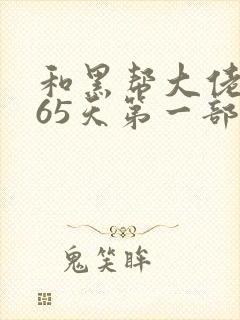 和黑帮大佬
65天第一部
鬼笑眸